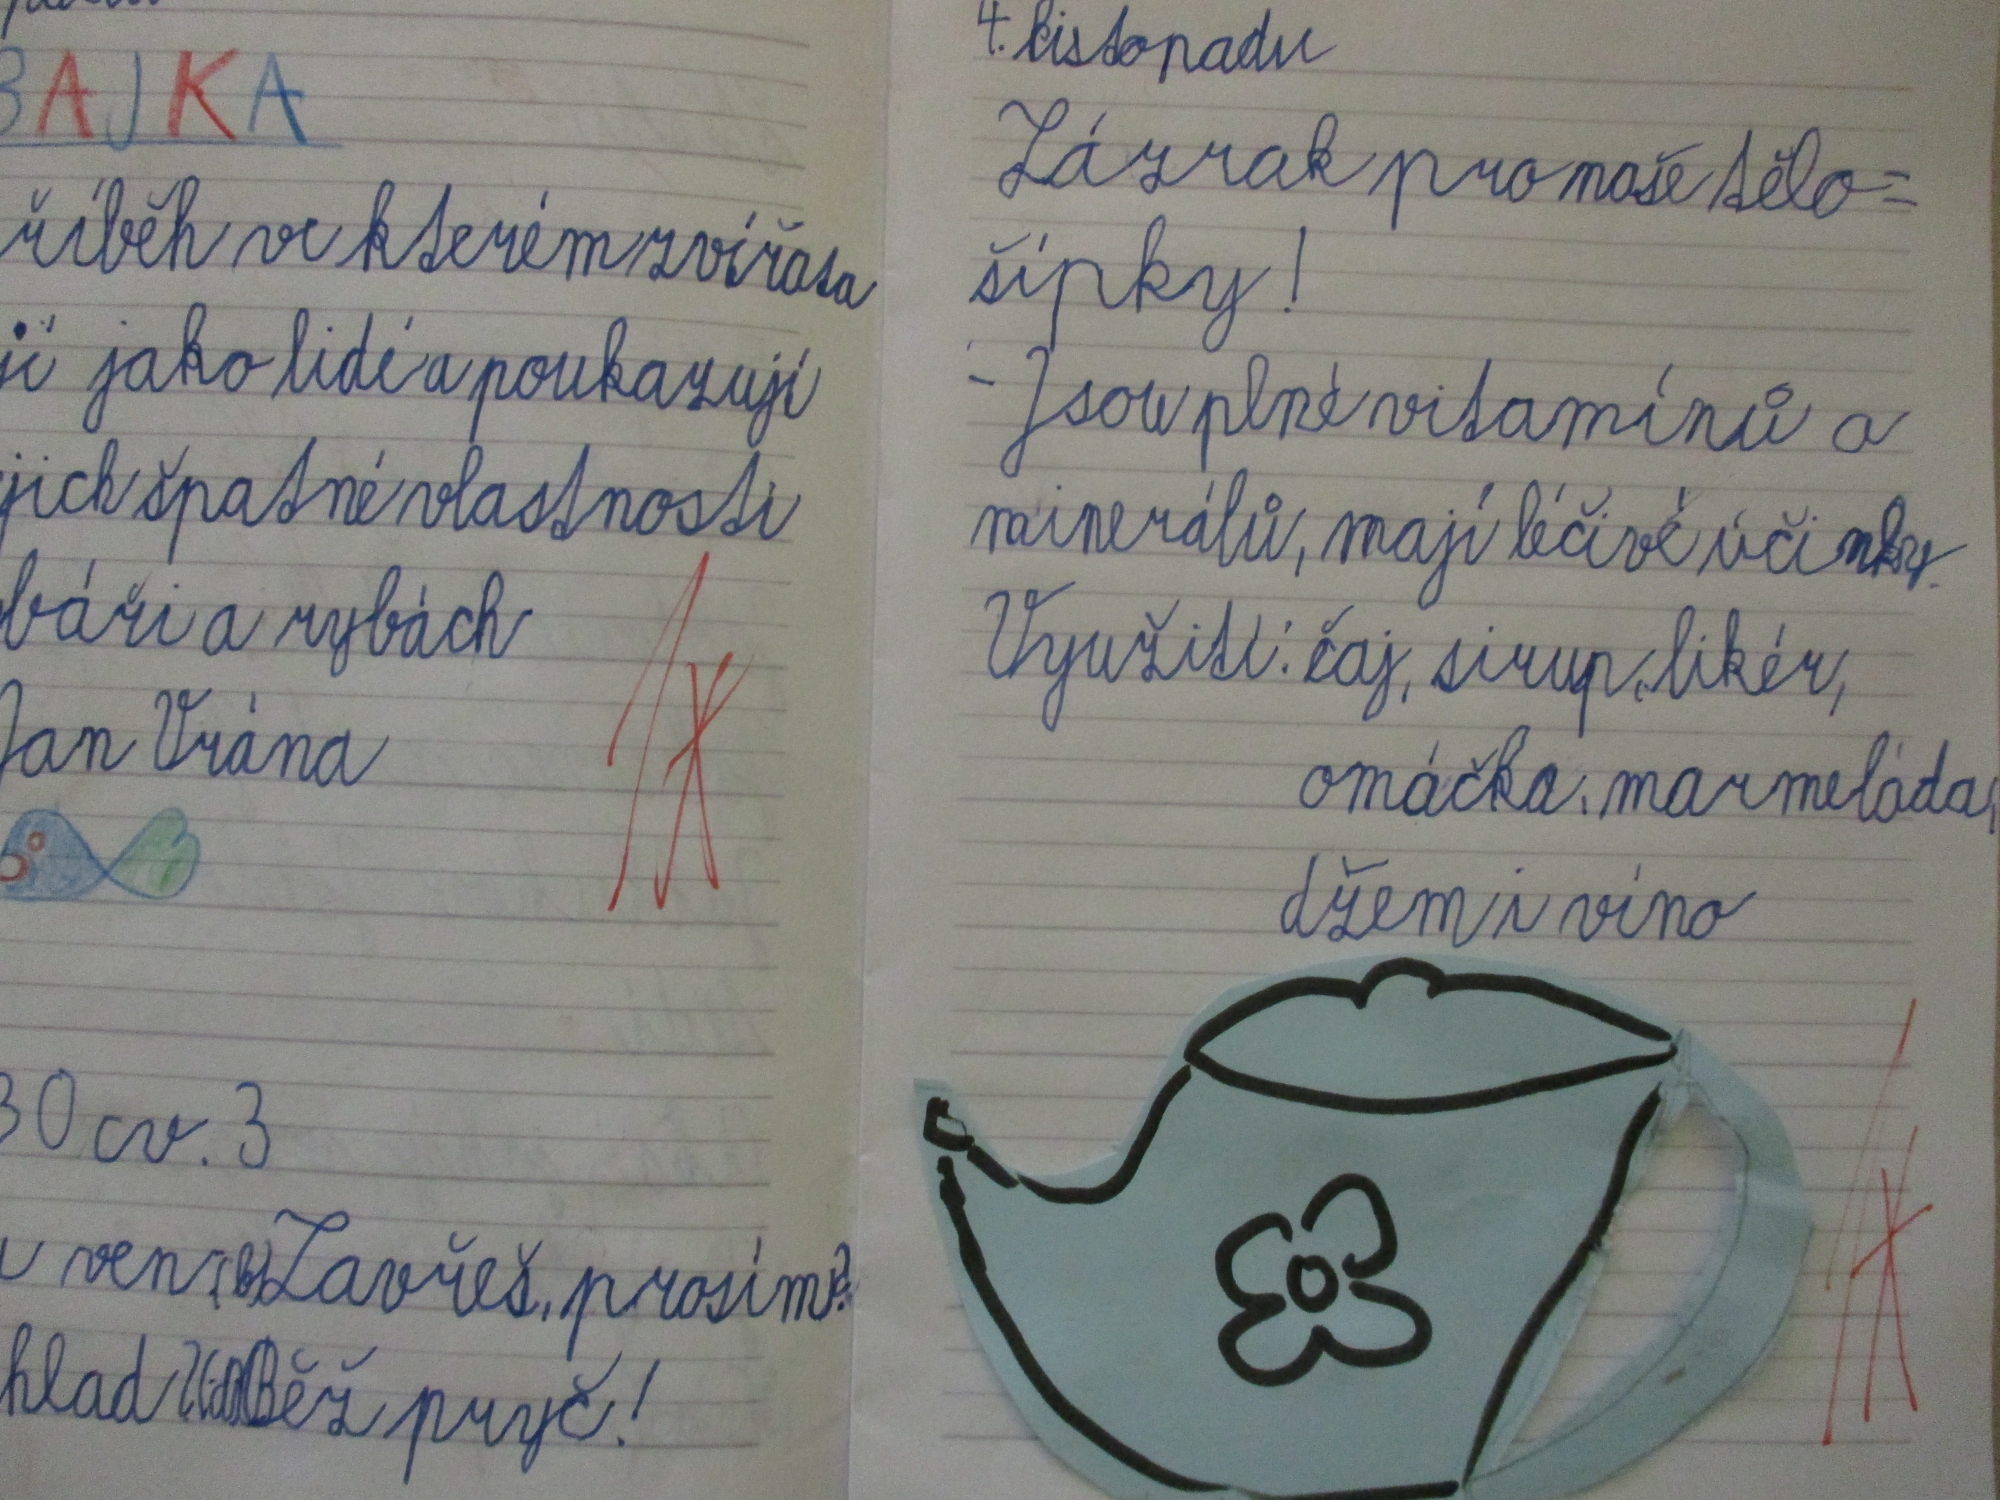 BAJKA
říběh ve kterém zvířata
jí jako lidé a poukazují
jich špatné vlastnosti
báři a rybách
Jan Vrána
1*
30 cv. 3
ven Zavřeš, prosím?
hlad Běž pryč!
4. listopadu
Zázrak pro naše tělo=
šípky!
- Jsou plné vitamínů a
minerálů, mají léčivé účinky.
Využití: čaj, sirup, likér,
omáčka, marmeláda,
džem i víno
1*